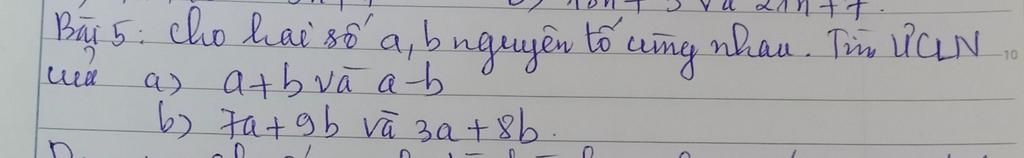 18n + 3 và 21n + 7.
Bài 5: Cho hai số a, b nguyên tố cùng nhau. Tìm ƯCLN
của a) a+b và a-b
b) 7a+9b và 3a+8b.